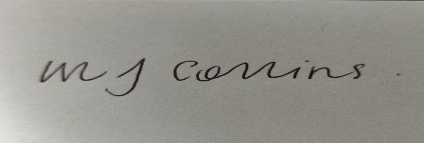 M J Collins.